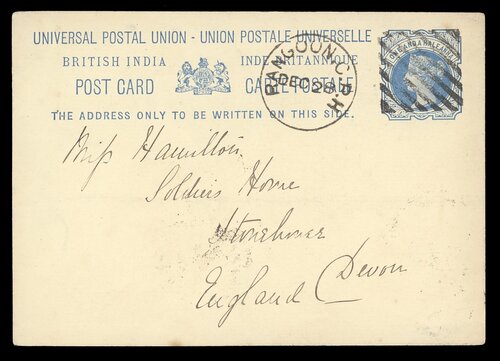 UNIVERSAL POSTAL UNION - UNION POSTALE UNIVERSELLE
BRITISH INDIA INDE BRITANNIQUE
POST CARD CARTE POSTALE
THE ADDRESS ONLY TO BE WRITTEN ON THIS SIDE.
RANGOON
DEC 28
Miss Hamilton
Soldiers Home
Stonehouse
Devon
England